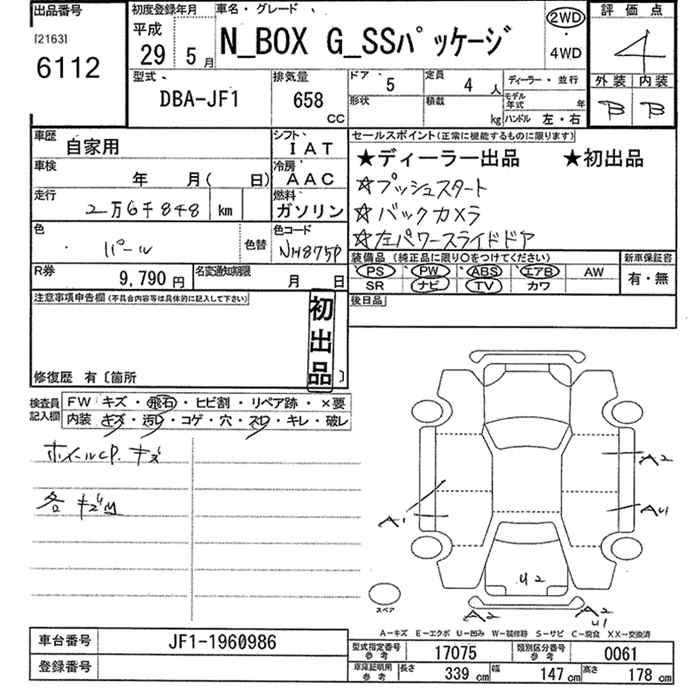 出品番号
[2163]
6112
初度登録年月
平成
29年 5月
車名・グレード
N_BOX G_SSパッケージ
2WD
・
4WD
評価点
4
外装 内装
B B
型式
DBA-JF1
排気量
658
CC
ドア 5
定員 4人
形状
積載 kg
ディーラー・並行
モデル年式 年
ハンドル 左・右
車歴 自家用
シフト IAT
車検 年 月( 日)
冷房 AAC
走行 2万6千848 km
燃料 ガソリン
色 パール
色替
色コード NH875P
R券 9,790円
名変通知期限 月 日
セールスポイント(正常に機能するものに限ります)
★ディーラー出品 ★初出品
☆プッシュスタート
☆バックカメラ
☆左パワースライドドア
装備品 (純正品に限り○をつけてください)
PS PW ABS エアB AW
SR ナビ TV カワ
新車保証書
有・無
後日品
注意事項申告欄(不具合内容等は具体的に記入して下さい)
初出品
修復歴 有〔箇所 〕
検査員記入欄
FW キズ・飛石・ヒビ割・リペア跡・×要
内装 キズ・汚れ・コゲ・穴・スレ・キレ・破レ
ホイールCP. キズ
各キズ凹
A2
A1
AU1
U2
A2
A2
U1
スペア
A−キズ E−エクボ U−凹み W−補修跡 S−サビ C−腐食 XX−交換済
車台番号 JF1-1960986
登録番号
型式指定番号 参考 17075
類別区分番号 参考 0061
車庫証明用 参考 長さ 339cm 幅 147cm 高さ 178cm